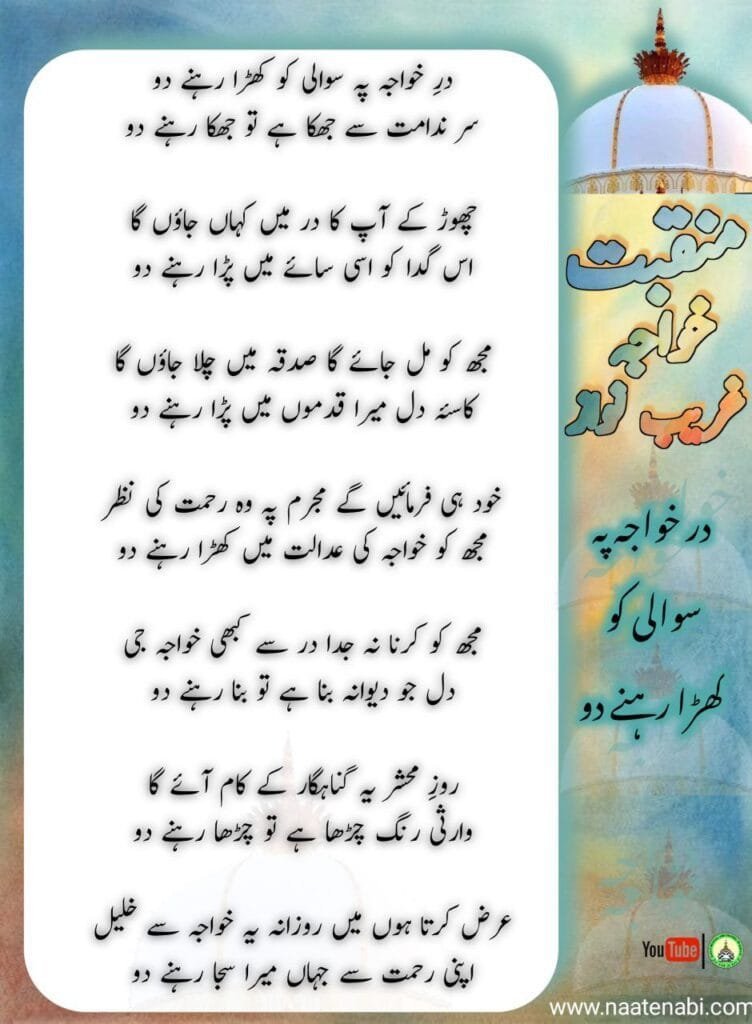 درِ خواجہ پہ سوالی کو کھڑا رہنے دو
سر ندامت سے جھکا ہے تو جھکا رہنے دو
چھوڑ کے آپ کا در میں کہاں جاؤں گا
اس گدا کو اسی سائے میں پڑا رہنے دو
مجھ کو مل جائے گا صدقہ میں چلا جاؤں گا
کاسئہ دل میرا قدموں میں پڑا رہنے دو
خود ہی فرمائیں گے مجرم پہ وہ رحمت کی نظر
مجھ کو خواجہ کی عدالت میں کھڑا رہنے دو
مجھ کو کرنا نہ جدا در سے کبھی خواجہ جی
دل جو دیوانہ بنا ہے تو بنا رہنے دو
روزِ محشر یہ گناہگار کے کام آئے گا
وارثی رنگ چڑھا ہے تو چڑھا رہنے دو
عرض کرتا ہوں میں روزانہ یہ خواجہ سے خلیل
اپنی رحمت سے جہاں میرا سجا رہنے دو
منقبت
خواجہ
غریب نواز
در خواجہ پہ
سوالی کو
کھڑا رہنے دو
YouTube
www.naatenabi.com